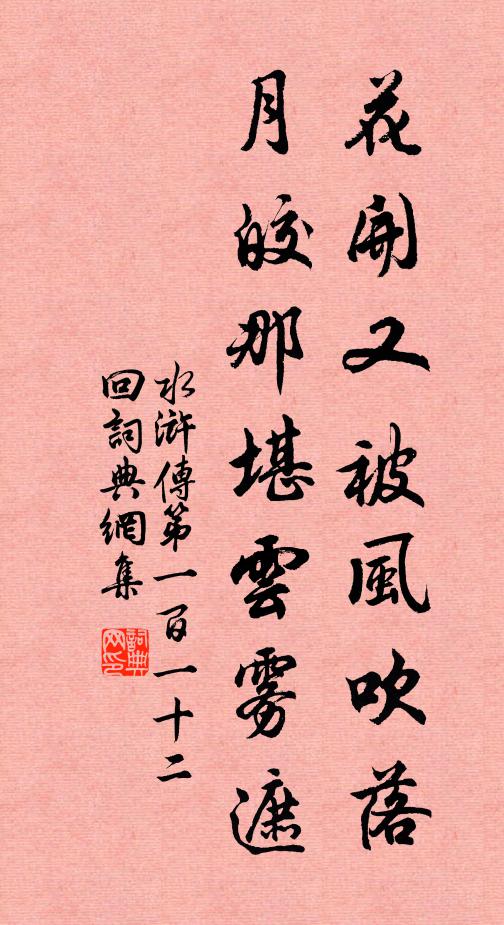 花開又被風吹落
月皎那堪雲霧遮
水滸傳第一百一十二
回詞典網集
詞典网印